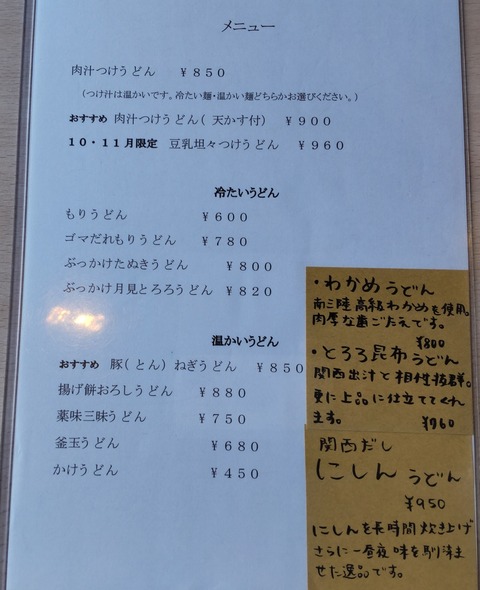 メニュー
肉汁つけうどん ￥８５０
（つけ汁は温かいです。冷たい麺・温かい麺どちらかお選びください。）
おすすめ 肉汁つけうどん( 天かす付) ￥９００
１０・１１月限定 豆乳坦々つけうどん ￥９６０
冷たいうどん
もりうどん ￥６００
ゴマだれもりうどん ￥７８０
ぶっかけたぬきうどん ￥８００
ぶっかけ月見とろろうどん ￥８２０
温かいうどん
おすすめ 豚( とん) ねぎうどん ￥８５０
揚げ餅おろしうどん ￥８８０
薬味三昧うどん ￥７５０
釜玉うどん ￥６８０
かけうどん ￥４５０
・わかめうどん
南三陸高級わかめを使用。
肉厚な歯ごたえです。
¥800
・とろろ昆布うどん
関西出汁と相性抜群。
更に上品に仕立ててくれ
ます。 ¥760
関西だし
にしんうどん
¥950
にしんを長時間炊き上げ
さらに一昼夜味を馴染ま
せた逸品です。